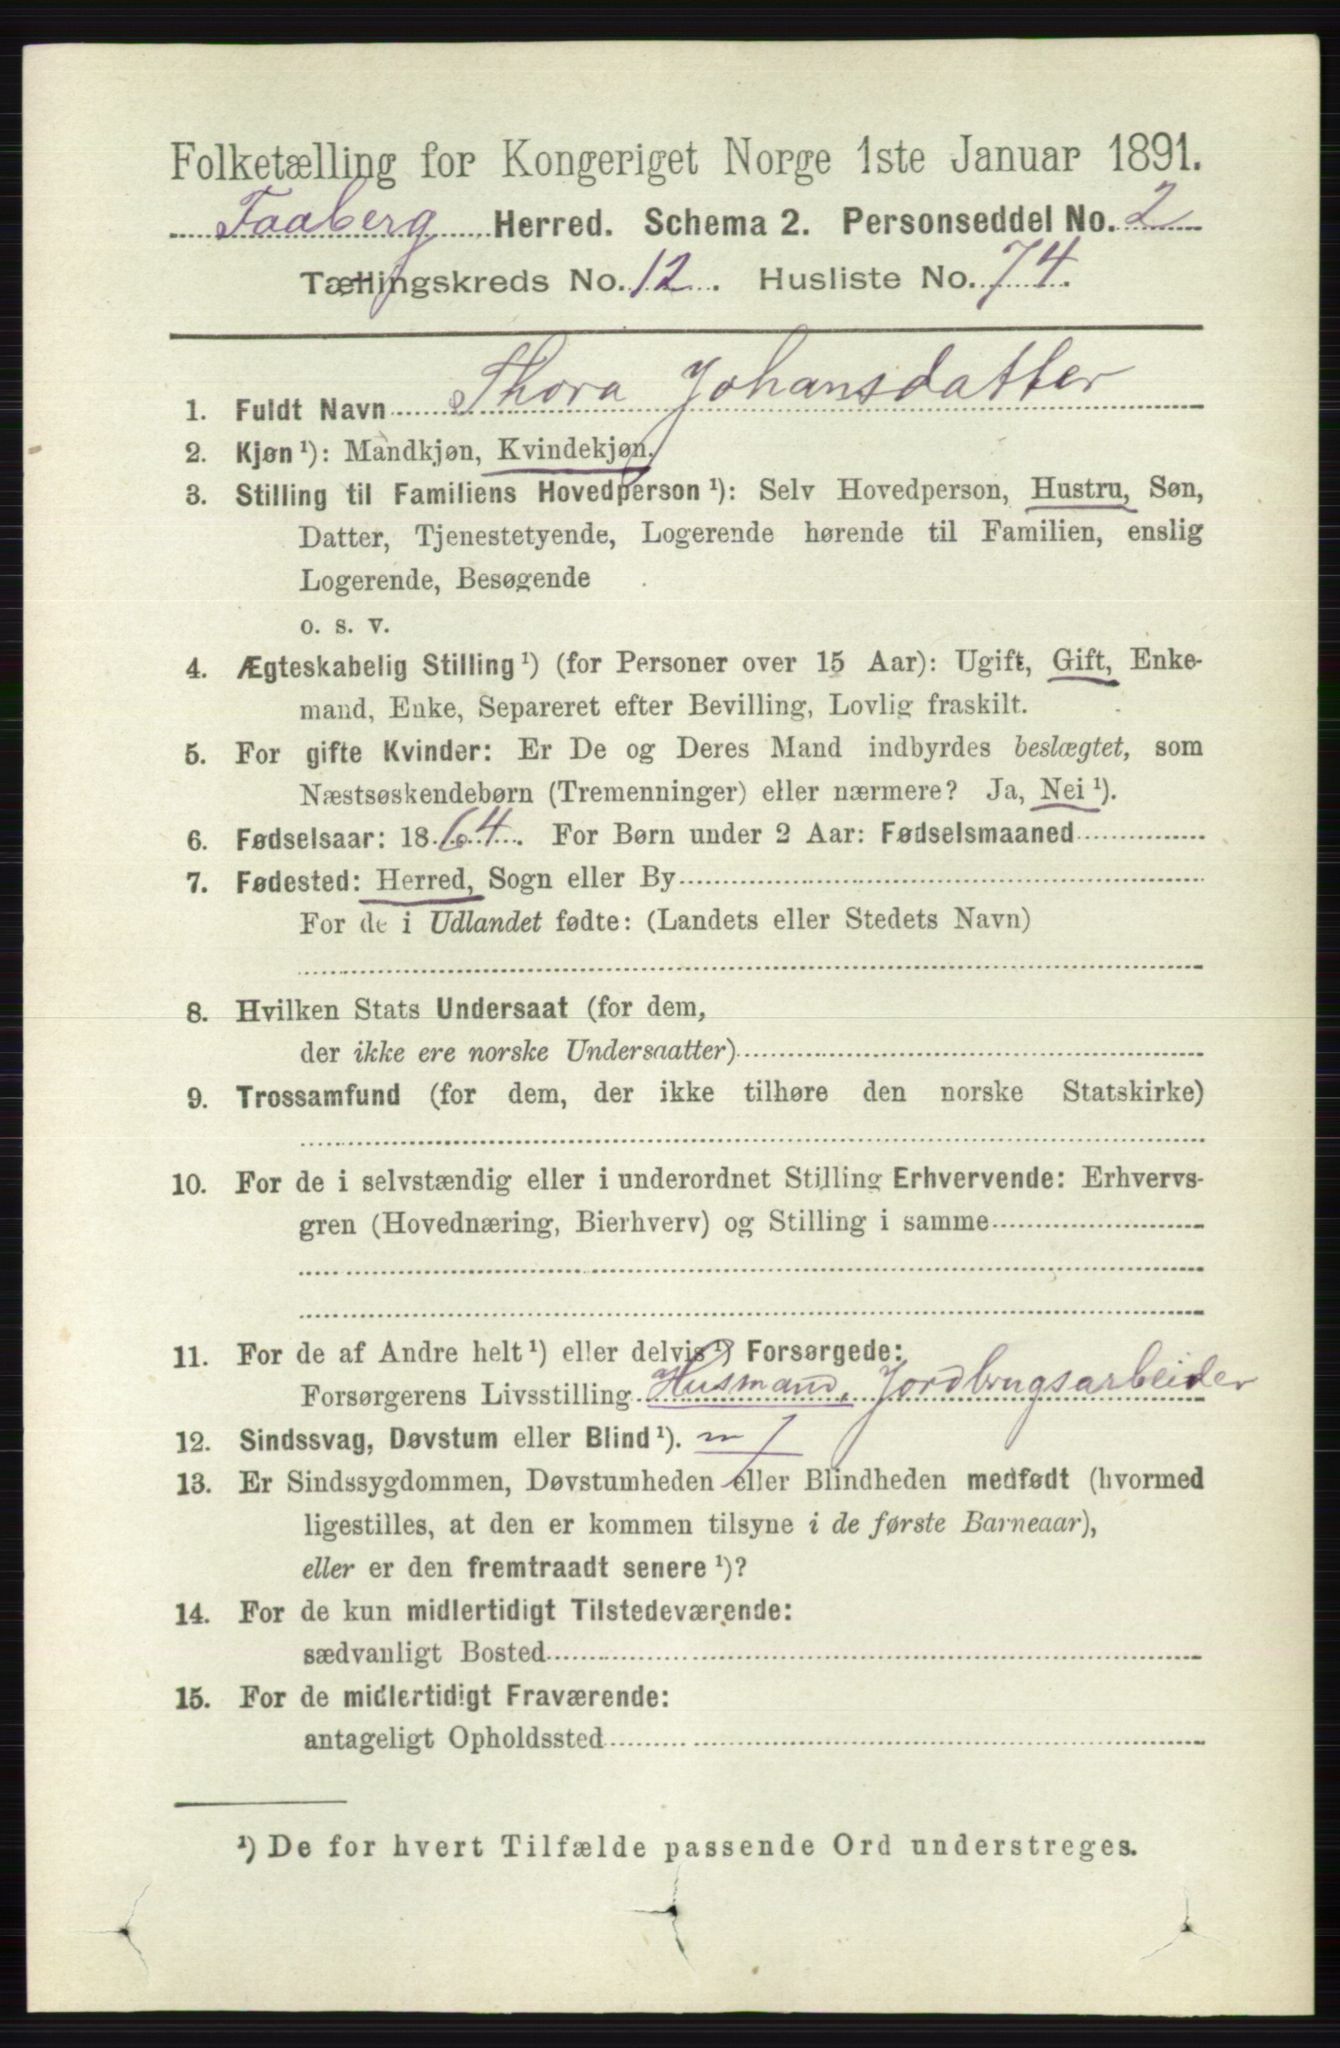 Folketælling for Kongeriget Norge 1ste Januar 1891.
Faaberg Herred. Schema 2. Personseddel No. 2
Tællingskreds No. 12. Husliste No. 74.
1. Fuldt Navn Thora Johansdatter
2. Kjøn ¹): Mandkjøn, Kvindekjøn.
3. Stilling til Familiens Hovedperson ¹): Selv Hovedperson, Hustru, Søn,
Datter, Tjenestetyende, Logerende hørende til Familien, enslig
Logerende, Besøgende
o. s. v.
4. Ægteskabelig Stilling ¹) (for Personer over 15 Aar): Ugift, Gift, Enke-
mand, Enke, Separeret efter Bevilling, Lovlig fraskilt.
5. For gifte Kvinder: Er De og Deres Mand indbyrdes beslægtet, som
Næstsøskendebørn (Tremenninger) eller nærmere? Ja, Nei ¹).
6. Fødselsaar: 1864. For Børn under 2 Aar: Fødselsmaaned
7. Fødested: Herred, Sogn eller By
For de i Udlandet fødte: (Landets eller Stedets Navn)
8. Hvilken Stats Undersaat (for dem,
der ikke ere norske Undersaatter)
9. Trossamfund (for dem, der ikke tilhøre den norske Statskirke)
10. For de i selvstændig eller i underordnet Stilling Erhvervende: Erhvervs-
gren (Hovednæring, Bierhverv) og Stilling i samme
11. For de af Andre helt ¹) eller delvis ¹) Forsørgede:
Forsørgerens Livsstilling Husmand, Jordbrugsarbeider
12. Sindssvag, Døvstum eller Blind ¹).
13. Er Sindssygdommen, Døvstumheden eller Blindheden medfødt (hvormed
ligestilles, at den er kommen tilsyne i de første Barneaar),
eller er den fremtraadt senere ¹)?
14. For de kun midlertidigt Tilstedeværende:
sædvanligt Bosted
15. For de midlertidigt Fraværende:
antageligt Opholdssted
¹) De for hvert Tilfælde passende Ord understreges.